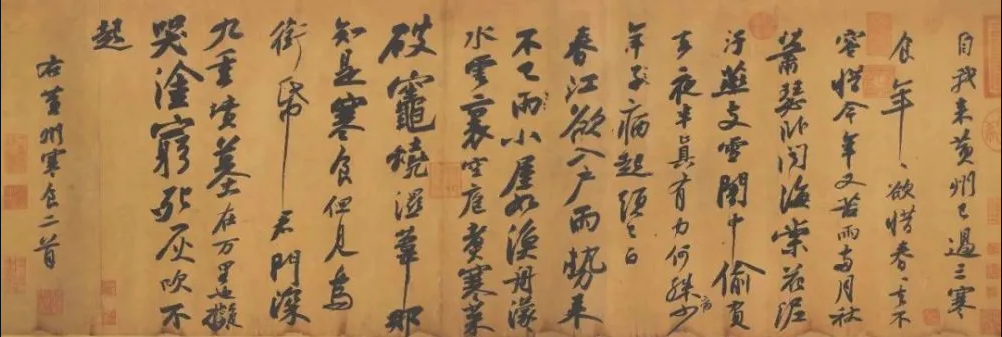 自我来黄州已過三寒
食年〻欲惜春〻去不
容惜今年又苦雨兩月秋
蕭瑟卧聞海棠花泥
汙燕支雪闇中偷負
去夜半真有力何殊病少
年子病起頭已白
春江欲入户雨勢来
不已雨小屋如漁舟濛〻
水雲裏空庖煑寒菜
破竈燒濕葦那
知是寒食但見烏
銜帋君門深
九重墳墓在万里也擬
哭塗窮死灰吹不
起
右黄州寒食二首